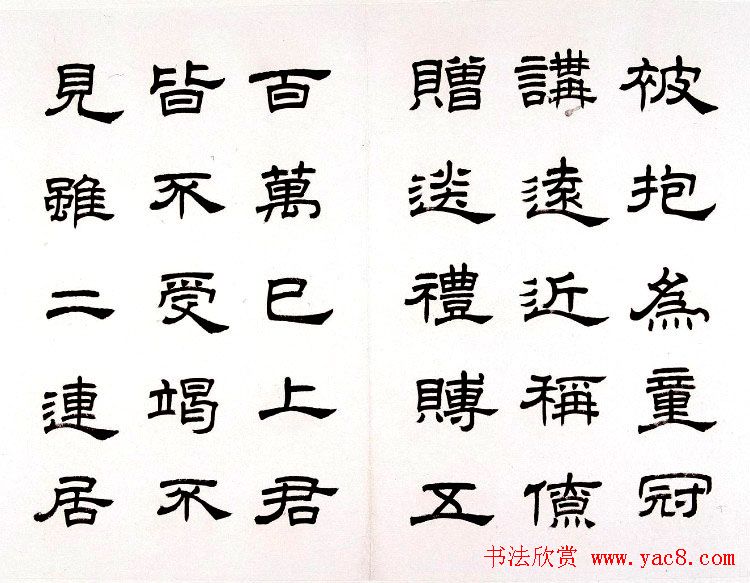 被抱為童冠
講遠近稱僚
贈送禮賻五
百萬已上君
皆不受竭不
見雖二連居
书法欣赏 www.yac8.com